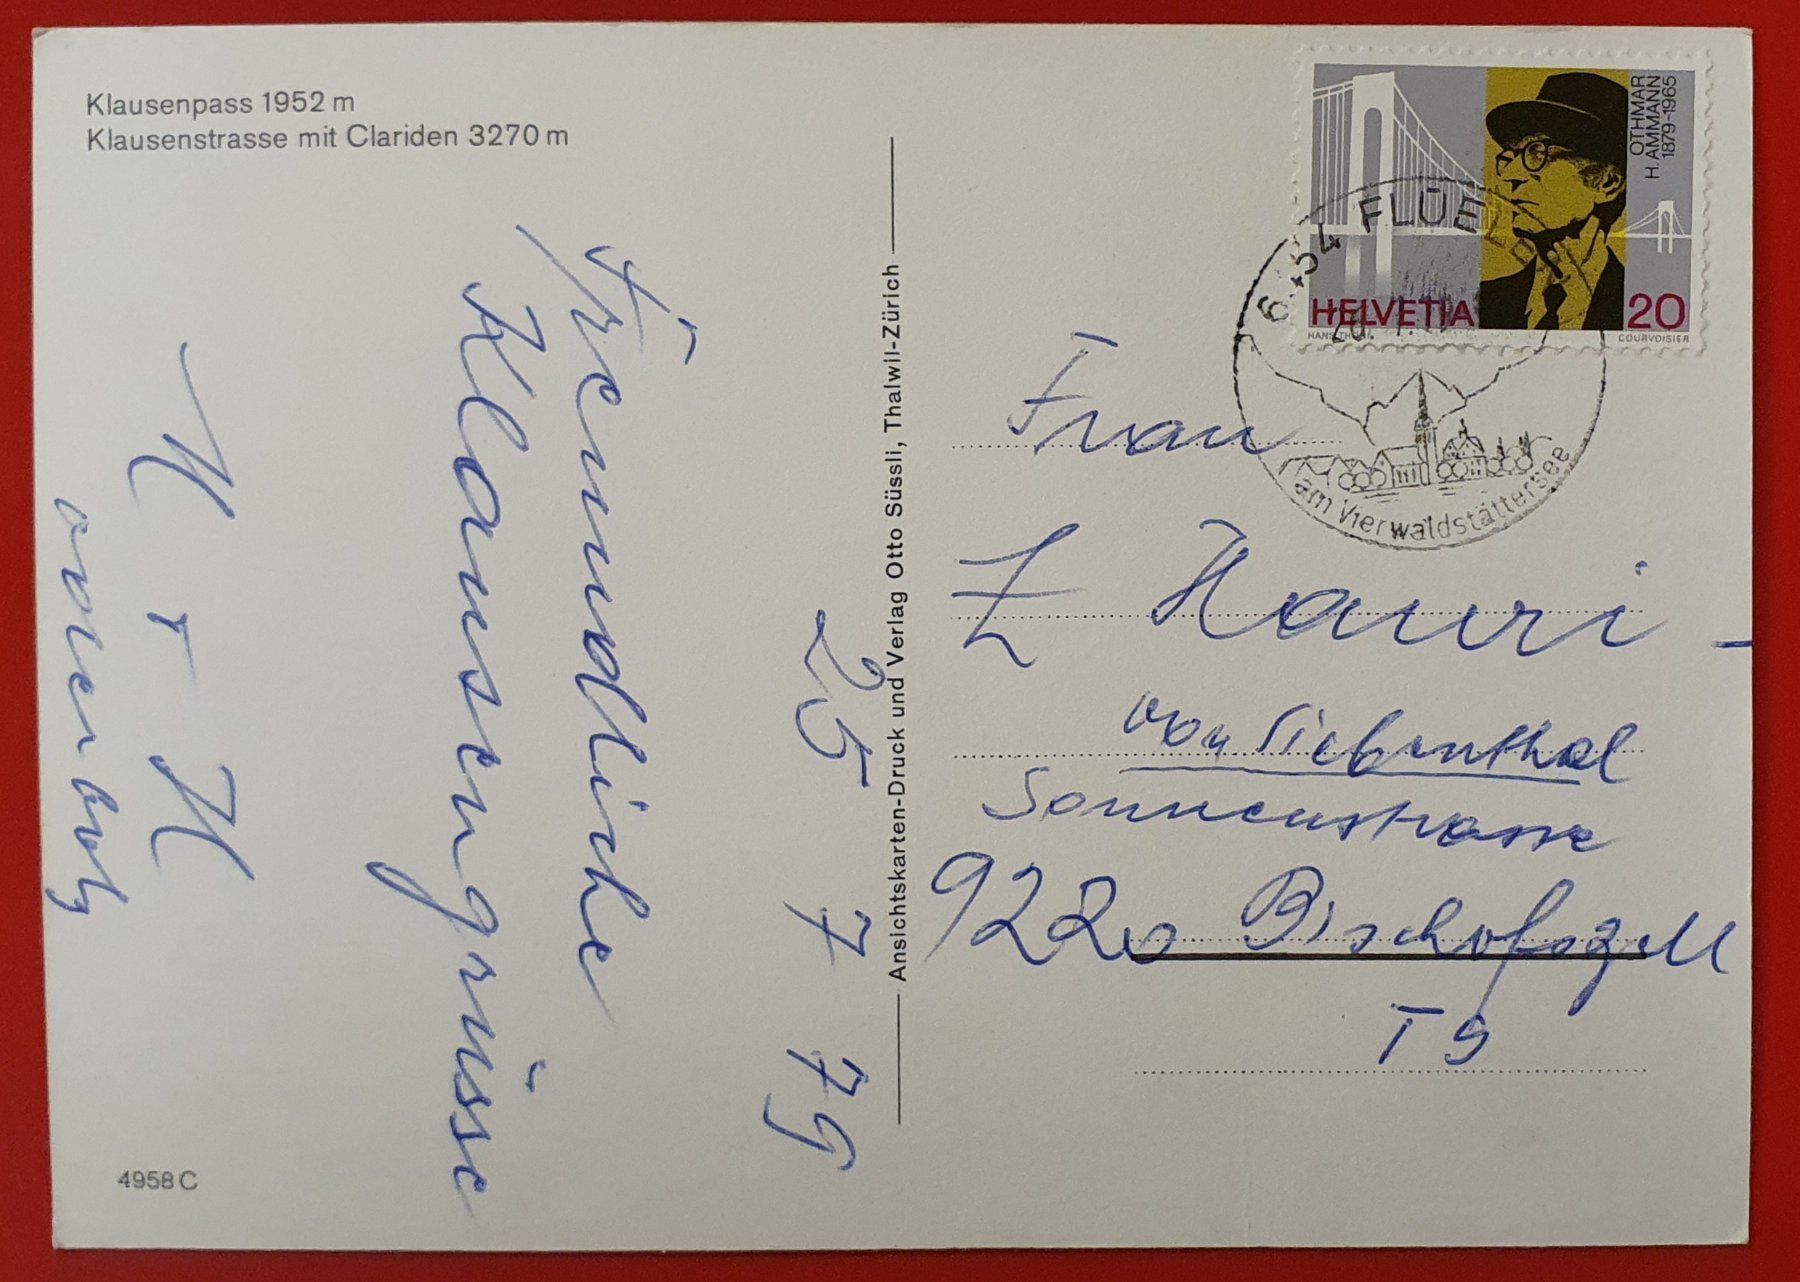 Klausenpass 1952 m
Klausenstrasse mit Clariden 3270 m
25 7 79
Freundliche
Klausengrüsse
H + H
Ansichtskarten-Druck und Verlag Otto Süssli, Thalwil-Zürich
OTHMAR
H. AMMANN
1879-1965
HELVETIA 20
COURVOISIER
6454 FLÜELEN
am Vierwaldstättersee
Frau
Hauri -
von Siebenthal
Sonnenstrasse
9220 Bischofszell
TG
4958 C